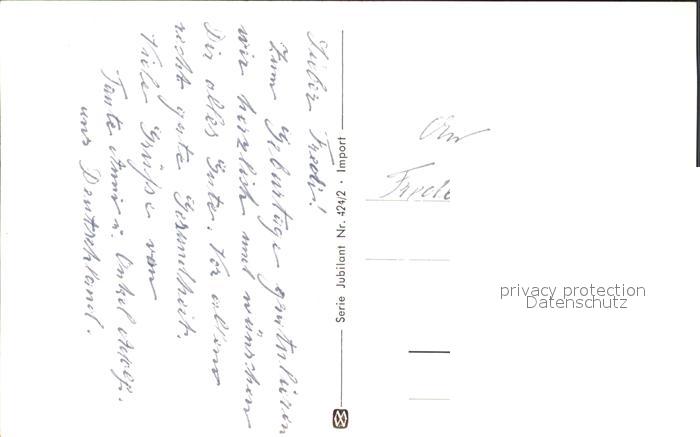 Lieber Fredi!
Zum Geburtage gratulieren
wir herzlich und wünschen
Dir alles Gute. Vor allem
recht gute Gesundheit.
Viele Grüße von
Tante Anni u. Onkel Adolf.
aus Deutschland.
Serie Jubilant Nr. 424/2 · Import
An
Fredi
privacy protection
Datenschutz